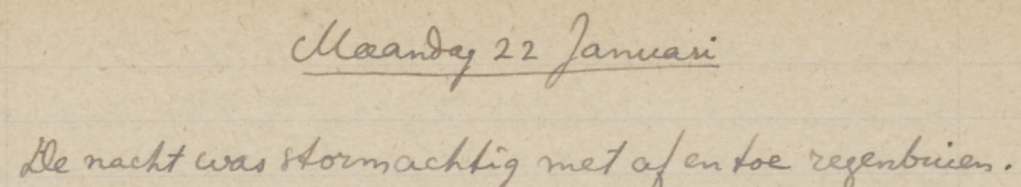 Maandag 22 Januari
De nacht was stormachtig met af en toe regenbuien.